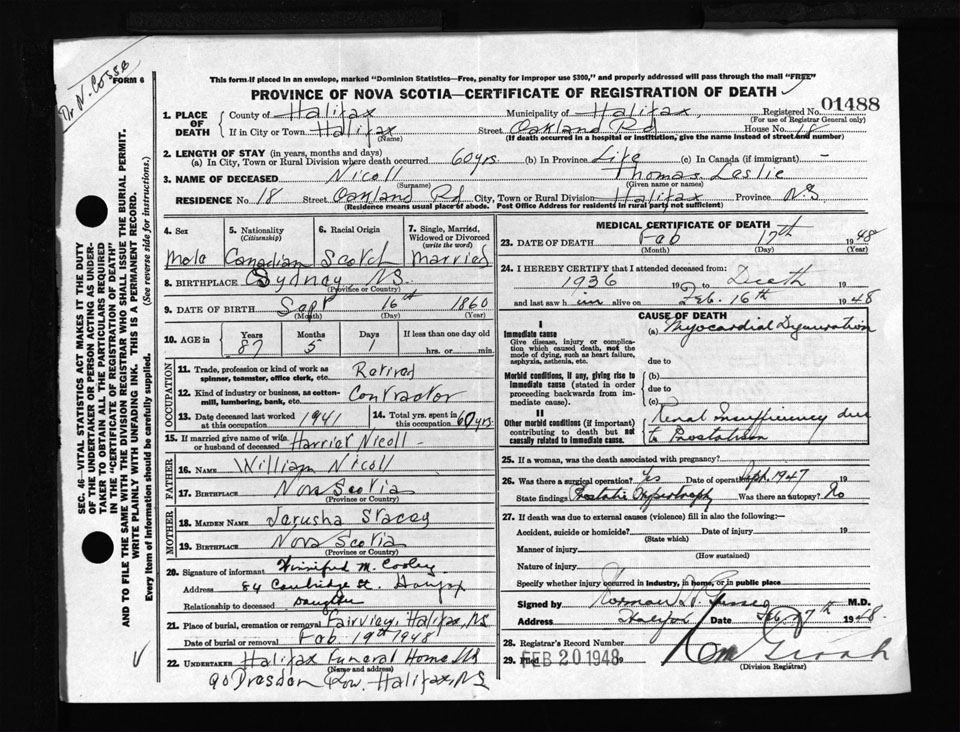 Dr N. Gosse
FORM 6
This form if placed in an envelope, marked "Dominion Statistics—Free, penalty for improper use $300," and properly addressed will pass through the mail "FREE"
PROVINCE OF NOVA SCOTIA—CERTIFICATE OF REGISTRATION OF DEATH
1. PLACE OF DEATH
County of Halifax Municipality of Halifax, Registered No. 01488
(For use of Registrar General only)
If in City or Town Halifax Street Oakland Rd House No. 18
(Name) (If death occurred in a hospital or institution, give the name instead of street and number)
2. LENGTH OF STAY (in years, months and days)
(a) In City, Town or Rural Division where death occurred 60 yrs. (b) In Province Life (c) In Canada (if immigrant) —
3. NAME OF DECEASED Nicoll Thomas Leslie
(Surname) (Given name or names)
RESIDENCE No. 18 Street Oakland Rd City, Town or Rural Division Halifax Province N.S
(Residence means usual place of abode. Post Office Address for residents in rural parts not sufficient)
4. Sex 5. Nationality (Citizenship) 6. Racial Origin 7. Single, Married, Widowed or Divorced (write the word)
Male Canadian Scotch Married
8. BIRTHPLACE Sydney N.S.
(Province or Country)
9. DATE OF BIRTH Sept 16th 1860
(Month) (Day) (Year)
10. AGE in Years Months Days If less than one day old
87 5 hrs. or min.
OCCUPATION
11. Trade, profession or kind of work as spinner, teamster, office clerk, etc. Retired
12. Kind of industry or business, as cotton-mill, lumbering, bank, etc. Contractor
13. Date deceased last worked at this occupation 1941 14. Total yrs. spent in this occupation 60 yrs.
15. If married give name of wife or husband of deceased Harriet Nicoll
FATHER
16. NAME William Nicoll
17. BIRTHPLACE Nova Scotia
(Province or Country)
MOTHER
18. MAIDEN NAME Jerusha Stacey
19. BIRTHPLACE Nova Scotia
(Province or Country)
20. Signature of informant Winnifred M. Cooley
Address 84 Cambridge St. Halifax
Relationship to deceased Daughter
21. Place of burial, cremation or removal Fairview, Halifax, N.S
Date of burial or removal Feb. 19th 1948
22. UNDERTAKER Halifax Funeral Home, NS
(Name and address)
90 Dresden Row. Halifax, N.S
MEDICAL CERTIFICATE OF DEATH
23. DATE OF DEATH Feb 17th 1948
(Month) (Day) (Year)
24. I HEREBY CERTIFY that I attended deceased from:
1936 19 to Death
and last saw him alive on Feb. 16th 1948
CAUSE OF DEATH
I
Immediate cause
Give disease, injury or complication which caused death, not the mode of dying, such as heart failure, asphyxia, asthenia, etc.
(a) Myocardial Degeneration
due to
Morbid conditions, if any, giving rise to immediate cause (stated in order proceeding backwards from immediate cause).
(b)
due to
(c)
II
Other morbid conditions (if important) contributing to death but not causally related to immediate cause.
Renal Insufficiency due
to Prostatism
25. If a woman, was the death associated with pregnancy?
26. Was there a surgical operation? Yes Date of operation Sept. 1947
State findings Prostatic Hypertrophy Was there an autopsy? No
27. If death was due to external causes (violence) fill in also the following:—
Accident, suicide or homicide? Date of injury 19
(State which)
Manner of injury
(How sustained)
Nature of injury
Specify whether injury occurred in industry, in home, or in public place
Signed by Norman H. Gosse M.D.
Address Halifax Date Feb. 17th 1948.
28. Registrar's Record Number
29. Filed FEB 20 1948 19
(Division Registrar)
SEC. 46—VITAL STATISTICS ACT MAKES IT THE DUTY
OF THE UNDERTAKER OR PERSON ACTING AS UNDERTAKER TO OBTAIN ALL THE PARTICULARS REQUIRED
IN THE "CERTIFICATE OF REGISTRATION OF DEATH"
AND TO FILE THE SAME WITH THE DIVISION REGISTRAR WHO SHALL ISSUE THE BURIAL PERMIT.
WRITE PLAINLY WITH UNFADING INK. THIS IS A PERMANENT RECORD.
Every item of Information should be carefully supplied. (See reverse side for instructions.)